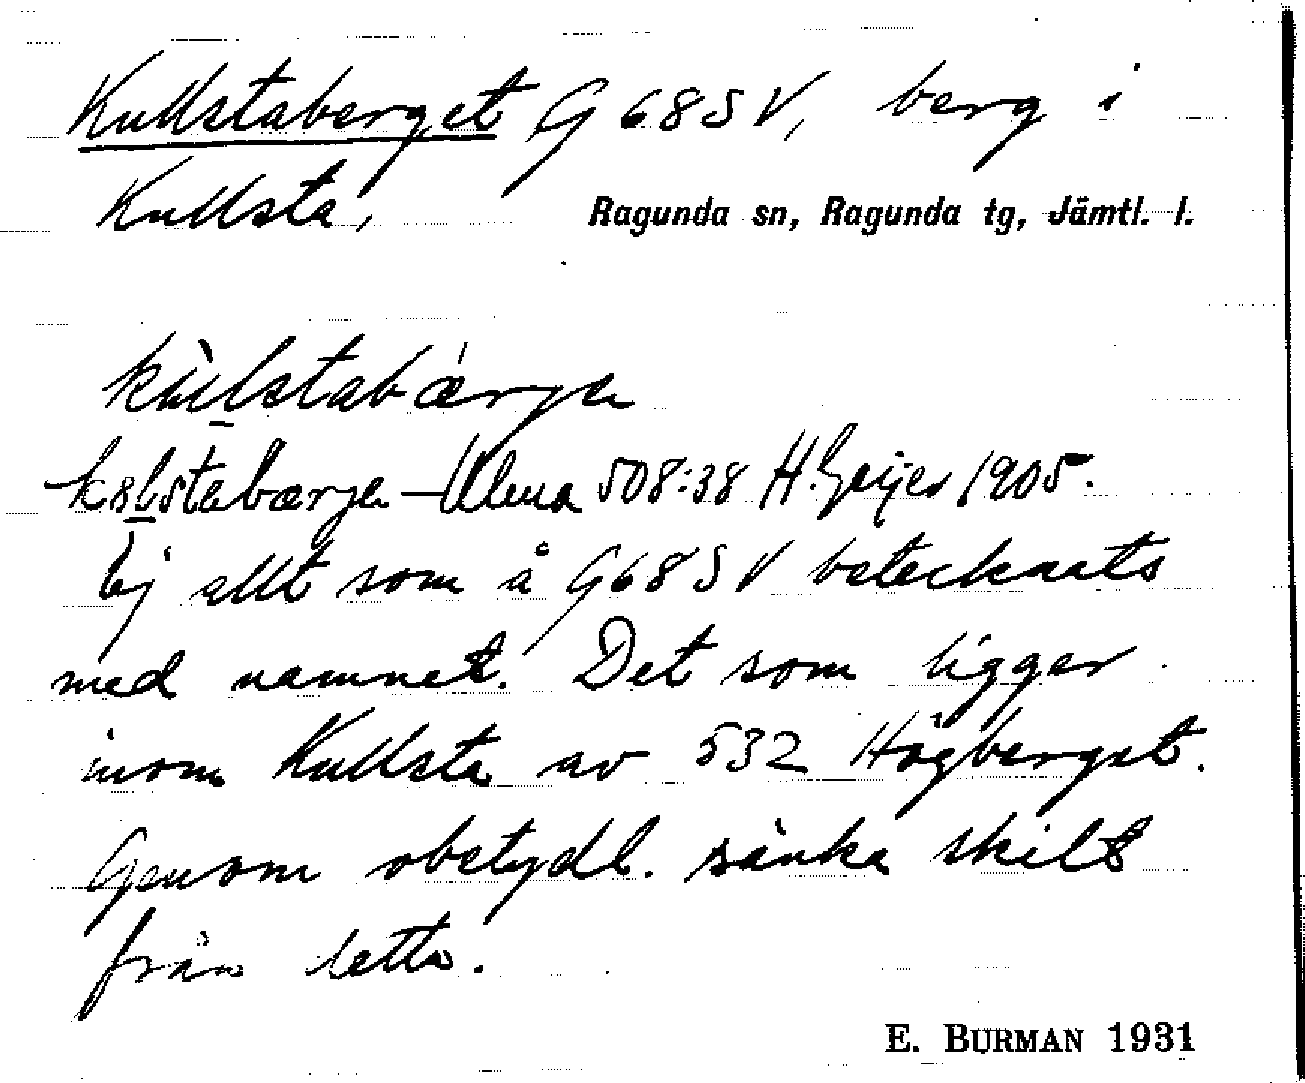 Kullstaberget G 68 SV, berg i
Kullsta,
Ragunda sn, Ragunda tg, Jämtl. l.
kùlstabǽrjɑ
kolstabærjɑ – Ulena 508:38 H. Geijer 1905.
Ej allt som å G 68 SV betecknats
med namnet. Det som ligger
inom Kullsta av 532 Högberget.
Genom obetydl. sänka skilt
från detta.
E. BURMAN 1931